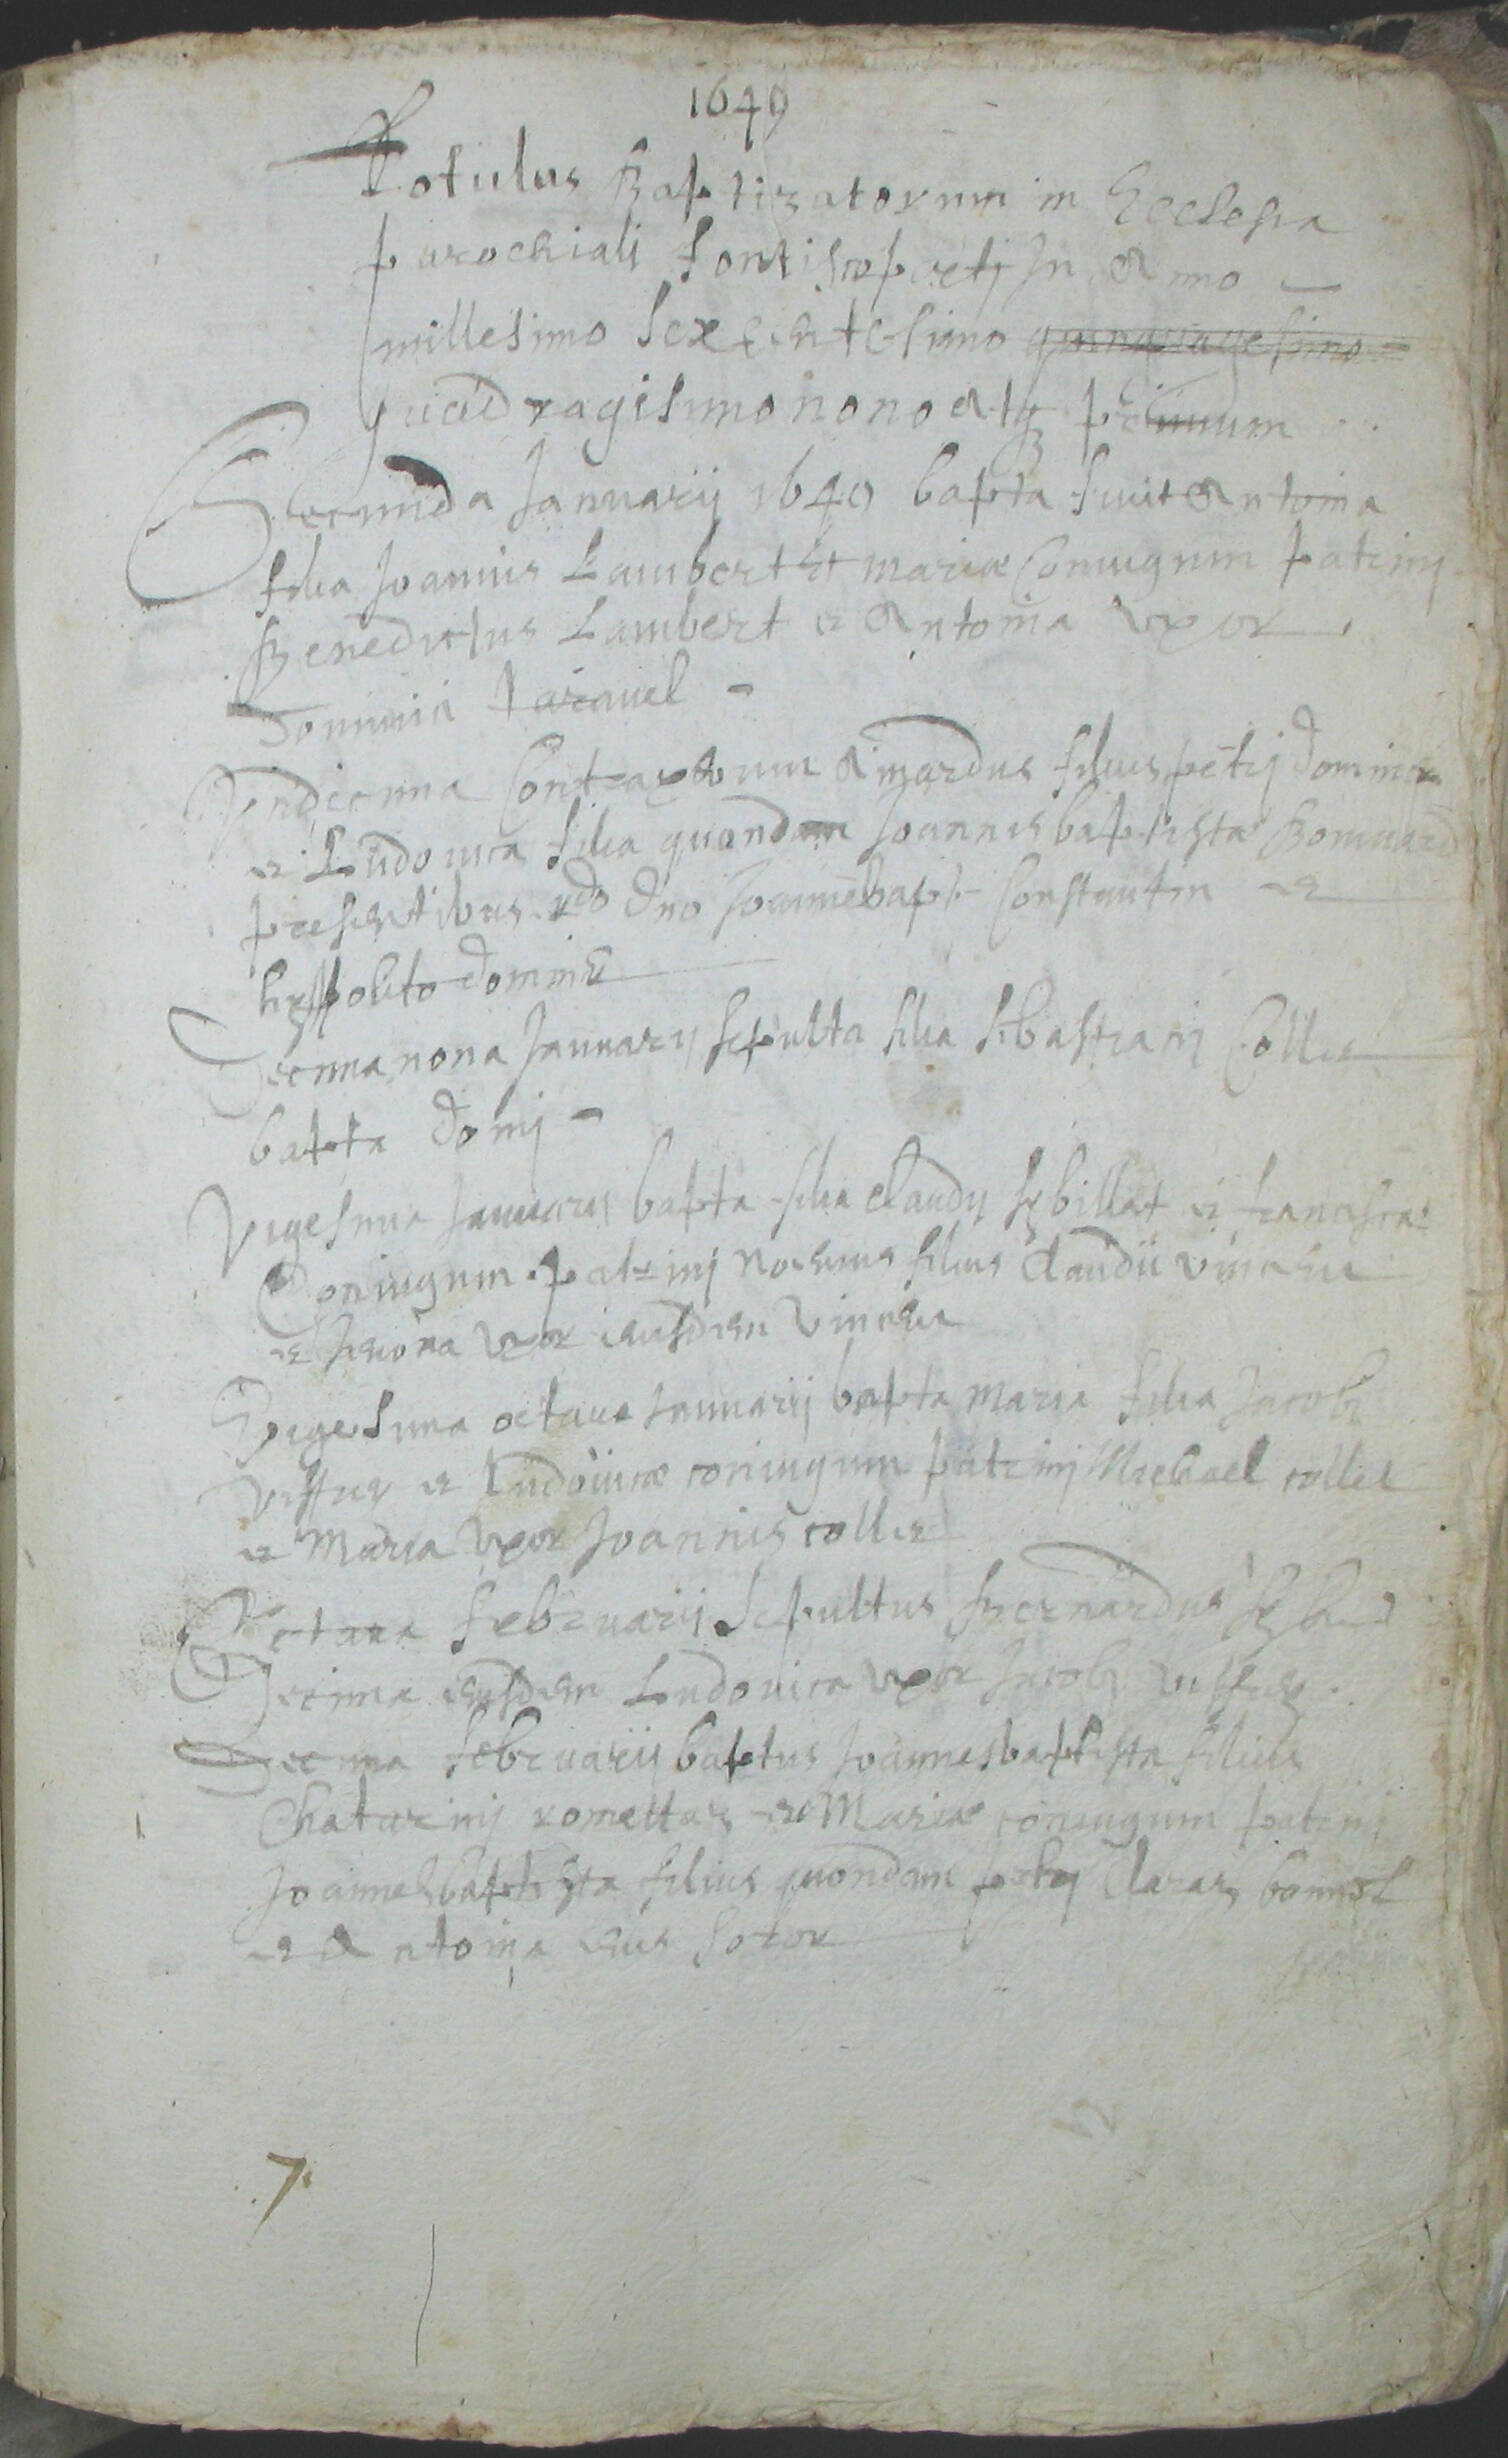 1649
Rotulus Baptizatorum in Ecclesia
parochiali fontiscopertj In Anno
millesimo sexcentesimo quinquagesimo
quadragisimo nono atq
Secunda Januarij 1649 bapta fuit Antonia
filia Joannis Lambert et mariæ Coniugum patrinj
Benedictus Lambert et Antonia vxor
Dominici Taravel
Vndecima Contraxerunt Aimardus filius petrj Dominici
et Ludouica filia quondam Joannisbaptistæ Bonnard
presentibus rdo dno Joannebapt Constantin et
hyppolito Dominici
Decima nona Januarij sepulta filia sebastianj Collet
bapta domj
Vigesima Januarij bapta filia claudij sybillat et franciscæ
Coniugum patrinj filius claudii vincent
et vxor eiusdem vincent
Vigesima octaua Januarij bapta maria filia Jacobi
et Ludouicæ coniugum patrinj Michael collet
et Maria vxor Joannis collet
Octaua februarij sepultus Bernardus
Decima eiusdem Ludouica vxor Jacobi
Decima februarij baptus Joannesbaptista filius
Chatarinj romettas et Mariæ coniugum patrinj
Joannesbaptista filius quondam petrj bonnet
et Antonia eius soror
7.